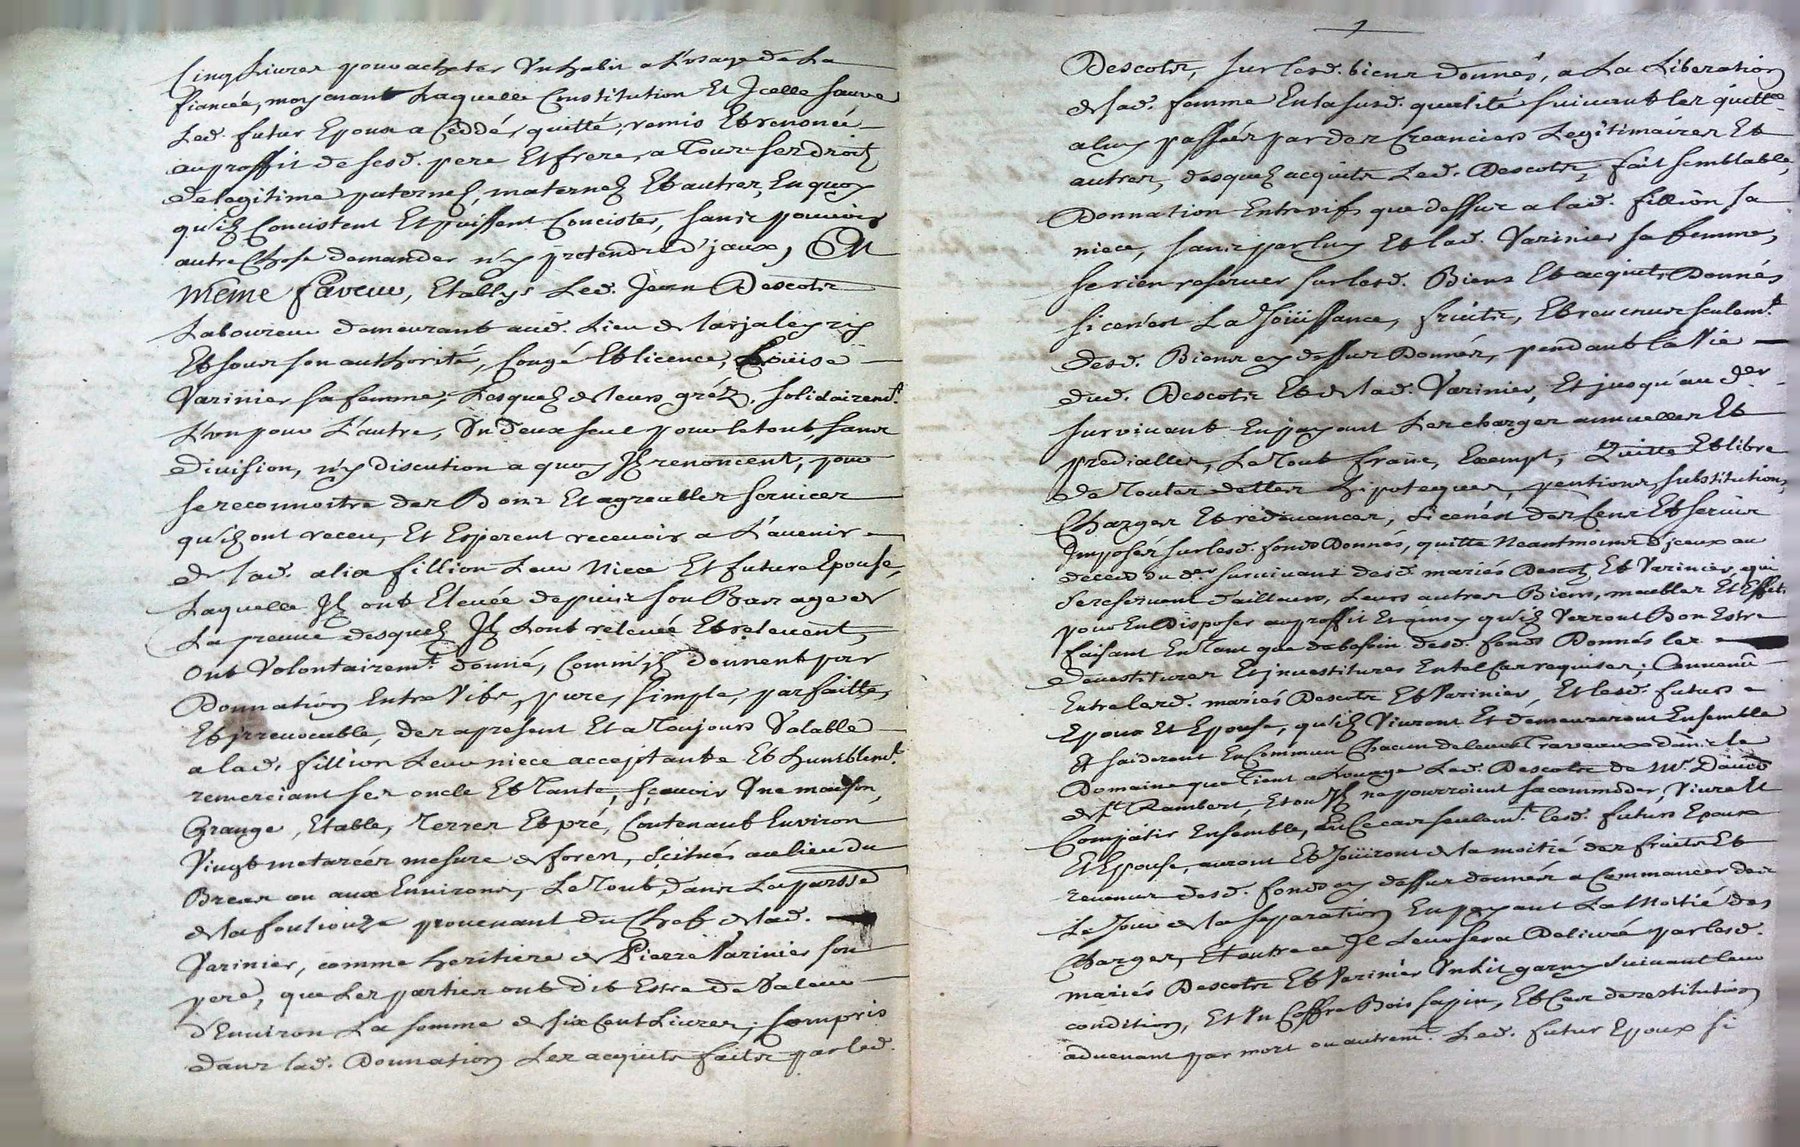 Cinq Livres pour acheter Un habit a L'usage de La
fiancée, moyenant Laquelle Constitution Et Icelle sauve
Led. futur Epoux a Ceddé, quitté, remis Et renoncé
au proffit de sesd. pere Et frere, a Tous ses droitz
de legitime paternelz, maternelz Et autres, En quoy
qu'ilz Concistent Et puissent Concister, sans pouvoir
autre Chose demander n'y pretendre d'jaux, En
même faveur, Etablys Led. Jean Descotz
Laboureur demeurant aud. Lieu de
Et sous son authorité, Congé Et licence, Louise
Varinier sa femme, Lesquelz de leurs gréz, solidairemt.
L'un pour L'autre, Un d'eux seul pour le tout, sans
division, n'y discution a quoy Ilz renoncent, pour
se reconnoitre des Bons Et agreables services
qu'ilz ont receu, Et Esperent recevoir a L'avenir
de lad. alix fillion Leur Niece Et future Epouse,
Laquelle Ilz ont Elevée depuis son Bas age de
La preuve desquelz Ilz L'ont relevée Et relevent,
ont Volontairemt. donné, Comm'ilz donnent par
Donnation Entre Vifs, pure, simple, parfaitte,
Et irrevocable, des apresent Et a Toujours Valable
a lad. fillion Leur niece acceptante Et humblemt.
remerciant ses oncle Et Tante, sçavoir Une maison,
Grange, Etable, Terres Et pré, Contenant Environ
Vingt metarées mesure de forest, scitués au lieu du
Breas ou aux Environs, Le Tout dans La parsse
de la fouliouze provenant du Chef de lad.
Varinier, comme heritiere de Pierre Varinier son
pere, que Les parties ont dit Estre de Valeur
d'Environ La somme de six Cent Livres, Compris
dans lad. Donnation Les acquits faits par led.
Descotz, sur lesd. biens donnés, a La Liberation
de sad. femme En la susd. qualité suivant les quittces
a luy passées par des Creanciers Legitimaires Et
autres, desquelz acquits Led. Descotz, fait semblable
Donnation Entrevifs que dessus a lad. fillion sa
niece, sans par luy Et lad. Varinier sa femme,
se rien reserver sur lesd. Biens Et acquits Donnés
si ce n'est La Joüissance, fruits, Et revenus seulemt.
desd. Biens cy dessus Donnés, pendant la Vie
dud. Descotz Et de lad. Varinier, Et jusqu'au der.
survivant En payant Les charges annuelles Et
predialles, Le Tout franc, Exempt, Quitte Et libre
de Toutes dettes hipoteques, pentions, substitutions,
Charges Et redevances, si ce n'est des Cens Et servis
Imposés sur lesd. fonds Donnés, quitte Neantmoins d'jceux au
deceds du der. survivant desd. mariés Descotz Et Varinier, qui
se reservent d'ailleurs, Leurs autres Biens, meubles Et Effets
pour En Disposer au proffit Et ainsy qu'ilz Verront Bon Estre
faisant En Tant que de besoin desd. fonds Donnés les
devestitures Et jnvestitures En tel Cas requises; Convenu
Entre lesd. mariés Descotz Et Varinier, Et lesd. futurs
Epoux Et Epouse, qu'ilz Vivront Et demeureront Ensemble
Et s'aideront En Commun Chacun de leurs Travaux dans le
Domaine que Tient a Louage Led. Descotz de Mr. David
de St. Rambert, Et ou Ilz ne pourroient s'acommoder, Vivre Et
Compatir Ensemble, En Ce cas seulemt. lesd. futurs Epoux
Et Epouse, auront Et Joüiront de la moitié des fruits Et
revenus desd. fonds cy dessus donnés a Commancer dois
Le Jour de la separation En payant La Moitié des
Charges, Et outre ce Il Leur sera Delivré par lesd.
mariés Descotz Et Varinier Un Lit garny suivant leur
condition, Et Un Coffre Bois sapin, Et Cas de restitution
advenant par mort ou autremt. Led. futur Epoux si